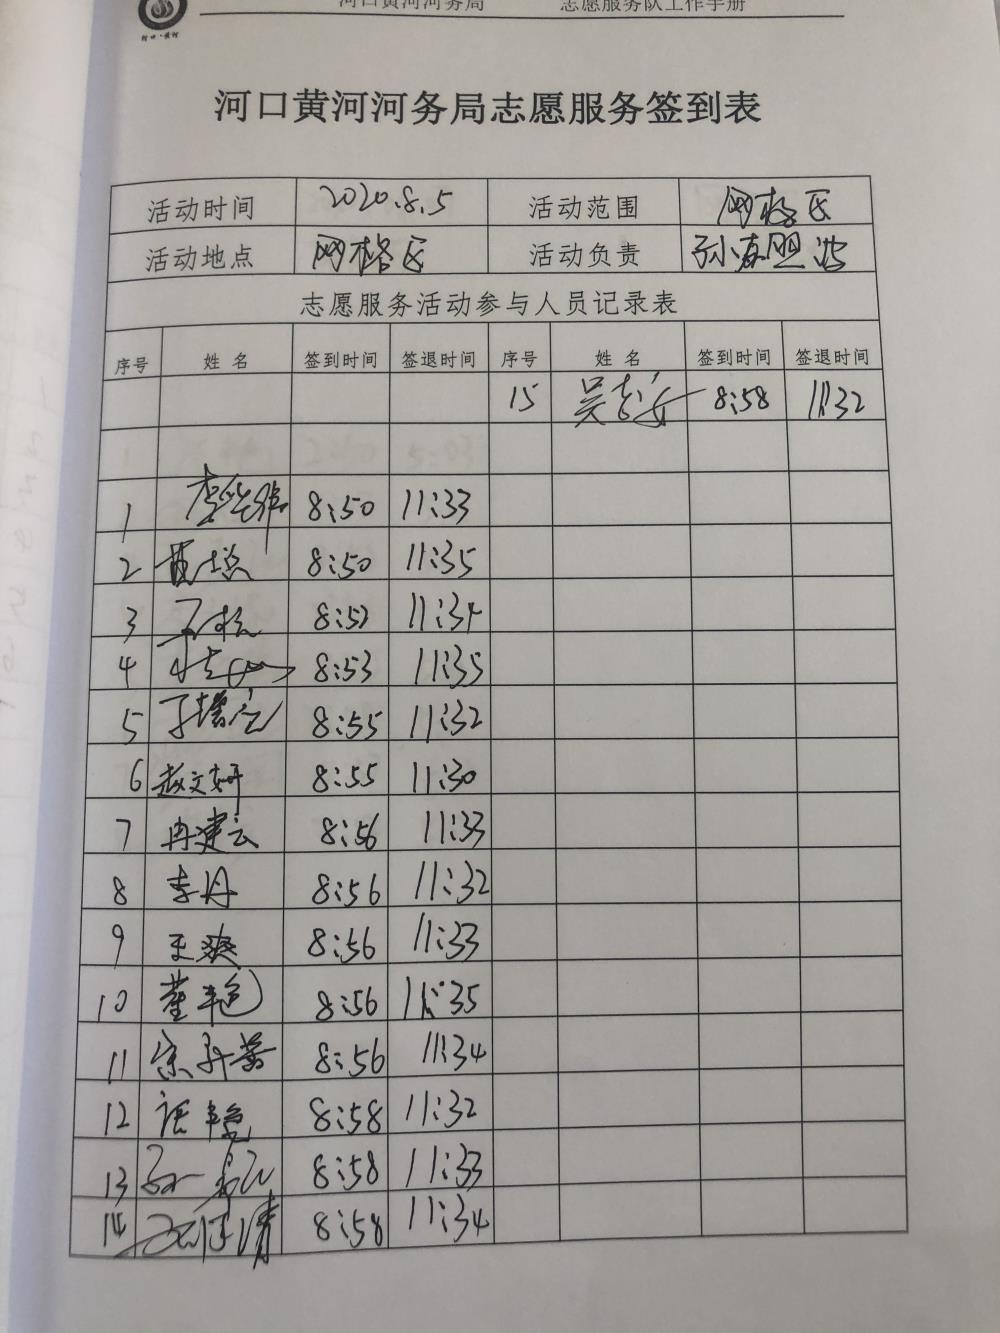 河口黄河河务局 志愿服务队工作手册
河口·黄河
河口黄河河务局志愿服务签到表
活动时间 2020.8.5 活动范围 网格区
活动地点 网格区 活动负责
志愿服务活动参与人员记录表
序号 姓名 签到时间 签退时间 序号 姓名 签到时间 签退时间
15 8:58 11:32
1 8:50 11:33
2 8:50 11:35
3 8:52 11:34
4 8:53 11:35
5 8:55 11:32
6 赵文妍 8:55 11:30
7 冉建云 8:56 11:33
8 李丹 8:56 11:32
9 王爽 8:56 11:33
10 董艳 8:56 11:35
11 8:56 11:34
12 8:58 11:32
13 8:58 11:33
14 8:58 11:34